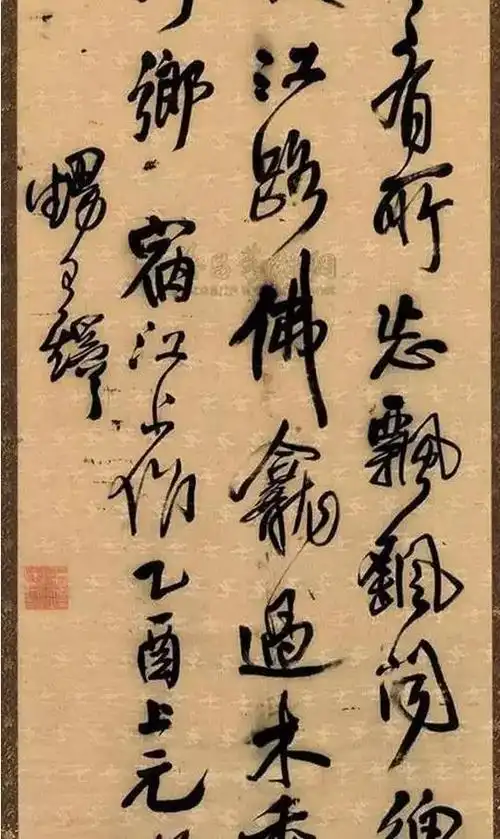 有所忘飄颻
江路佛龕過木
鄉宿江上作乙酉上元
王鐸